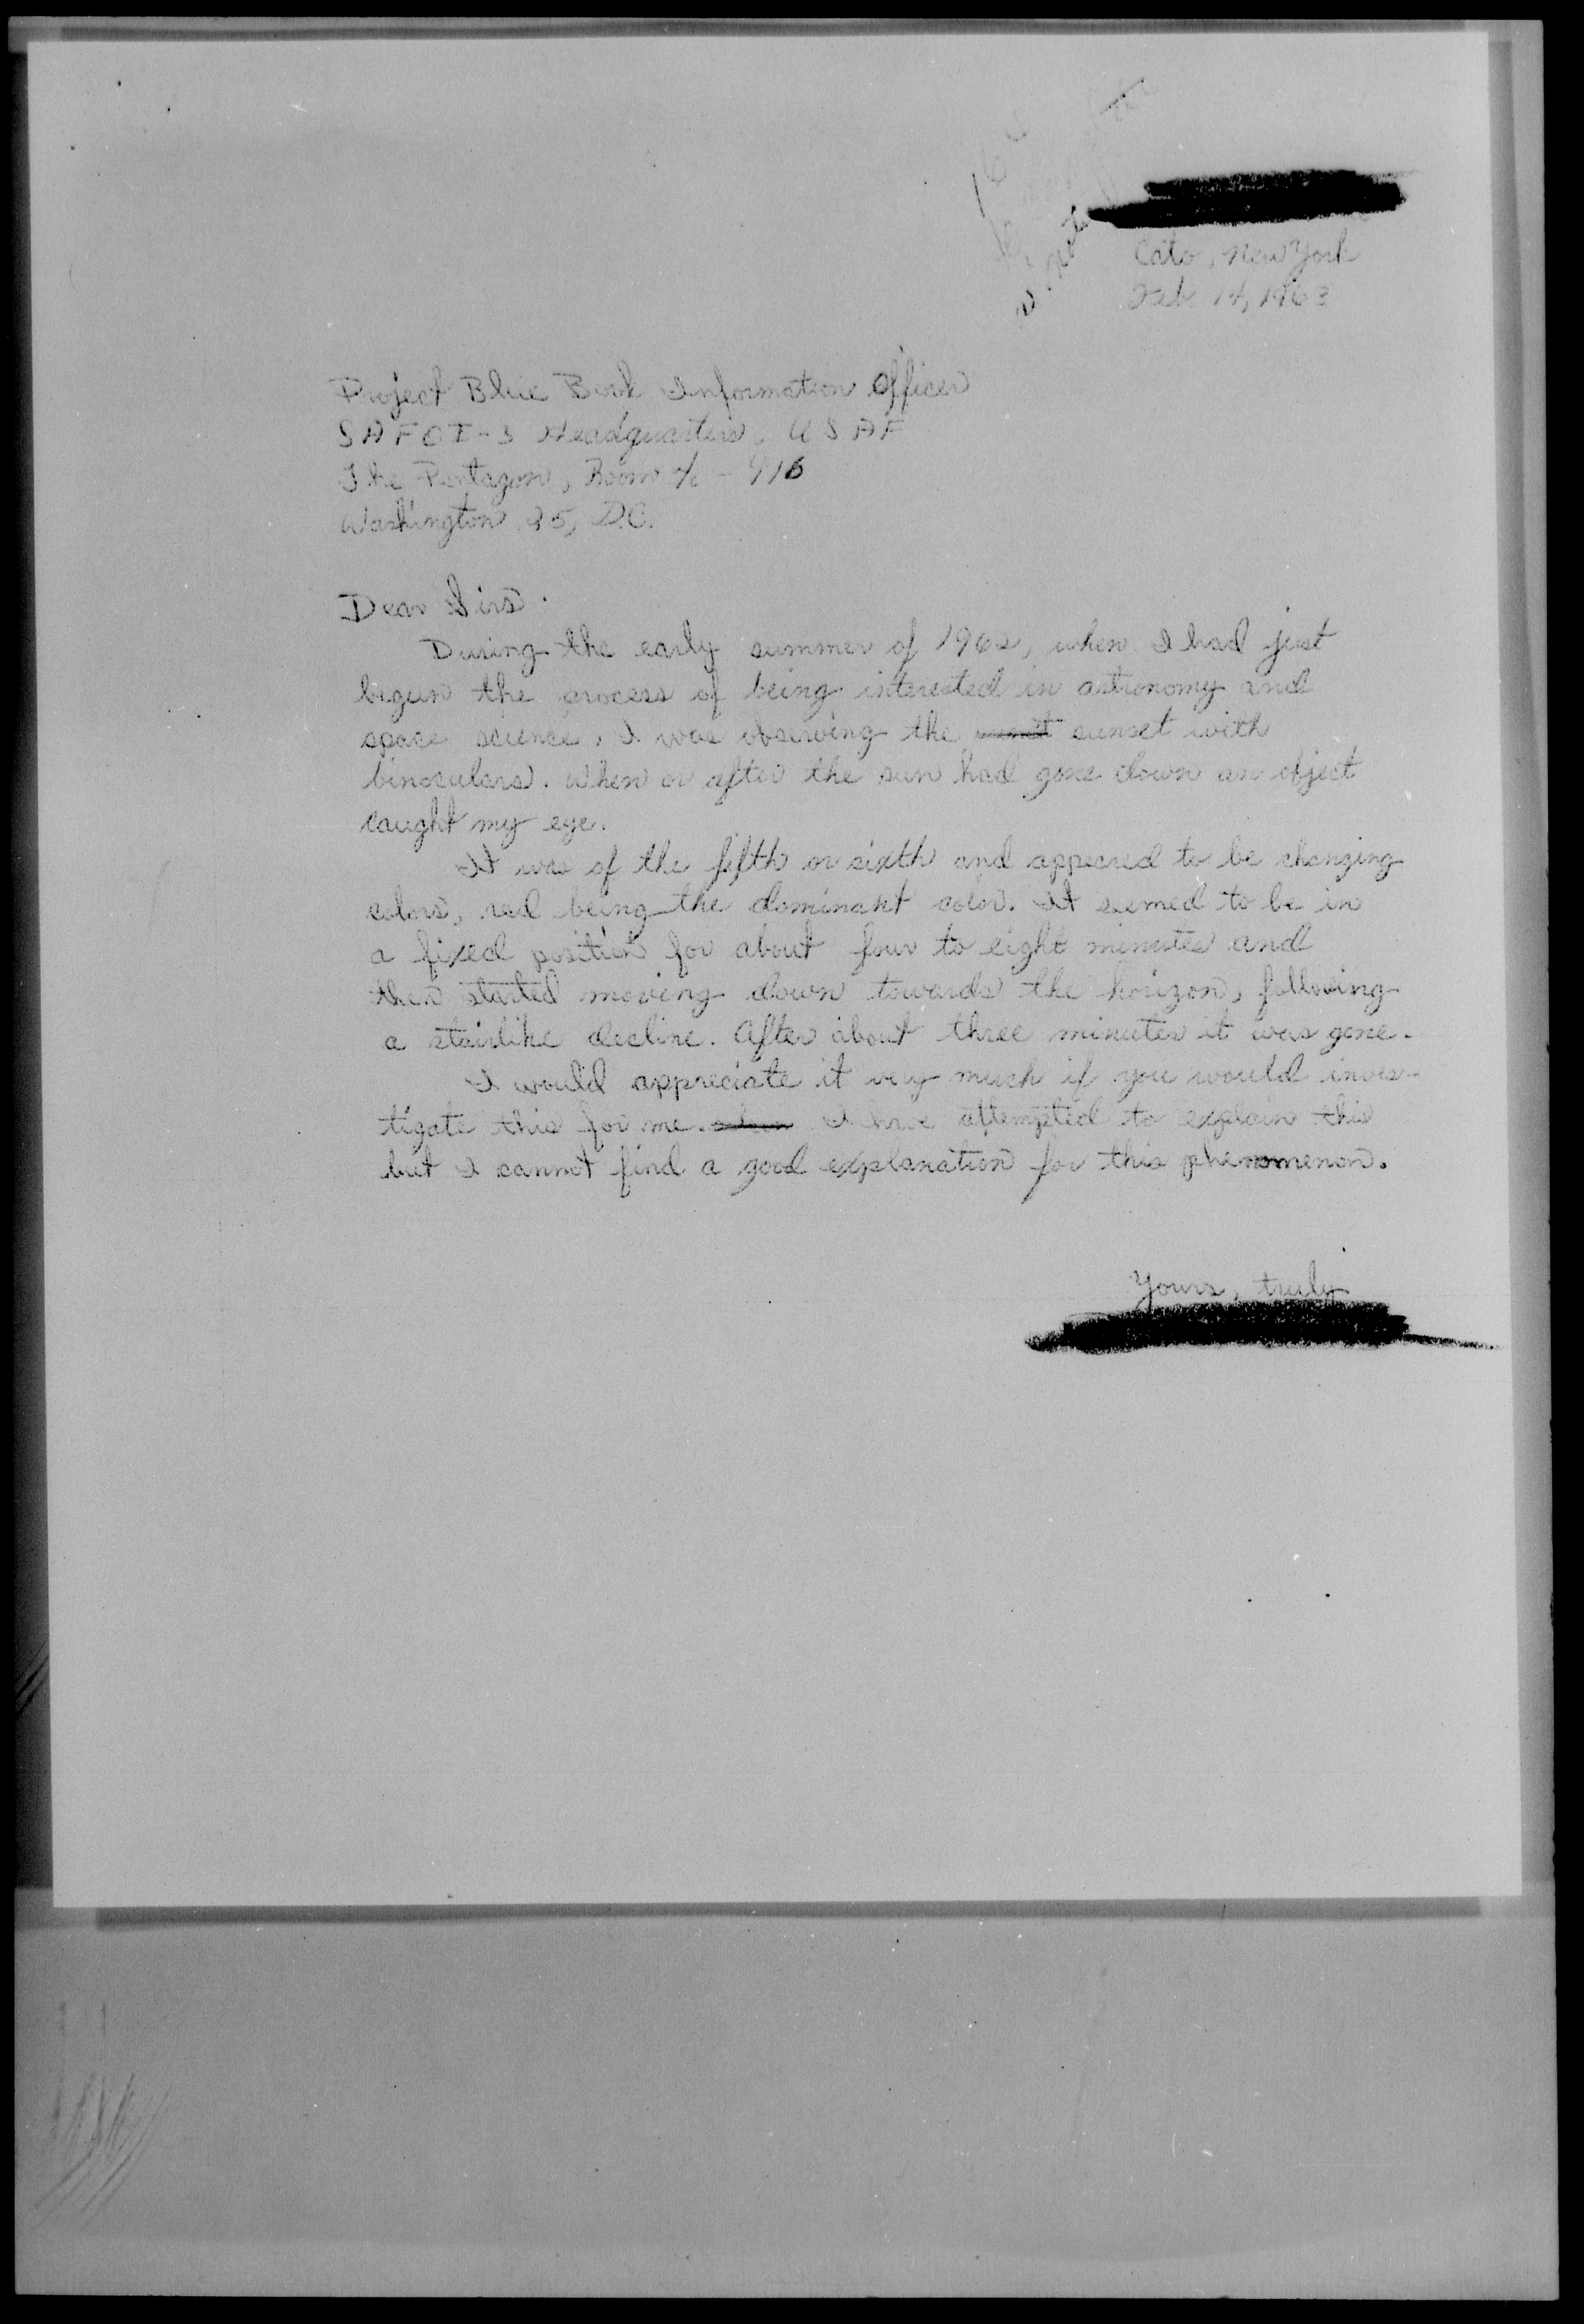 Cato, New York
Feb. 14, 1963
Project Blue Book Information Officer
SAFOI-3 Headquarters, USAF
The Pentagon, Room
Washington 25, D.C.
Dear Sirs.
During the early summer of 1962, when I had just
begun the process of being interested in astronomy and
space science, I was observing the sunset with
binoculars. When or after the sun had gone down an object
caught my eye.
It was of the fifth or sixth and appeared to be changing
colors, red being the dominant color. It seemed to be in
a fixed position for about four to eight minutes and
then started moving down towards the horizon, following
a stairlike decline. After about three minutes it was gone.
I would appreciate it very much if you would inves-
tigate this for me. I have attempted to explain this
but I cannot find a good explanation for this phenomenon.
Yours, truly